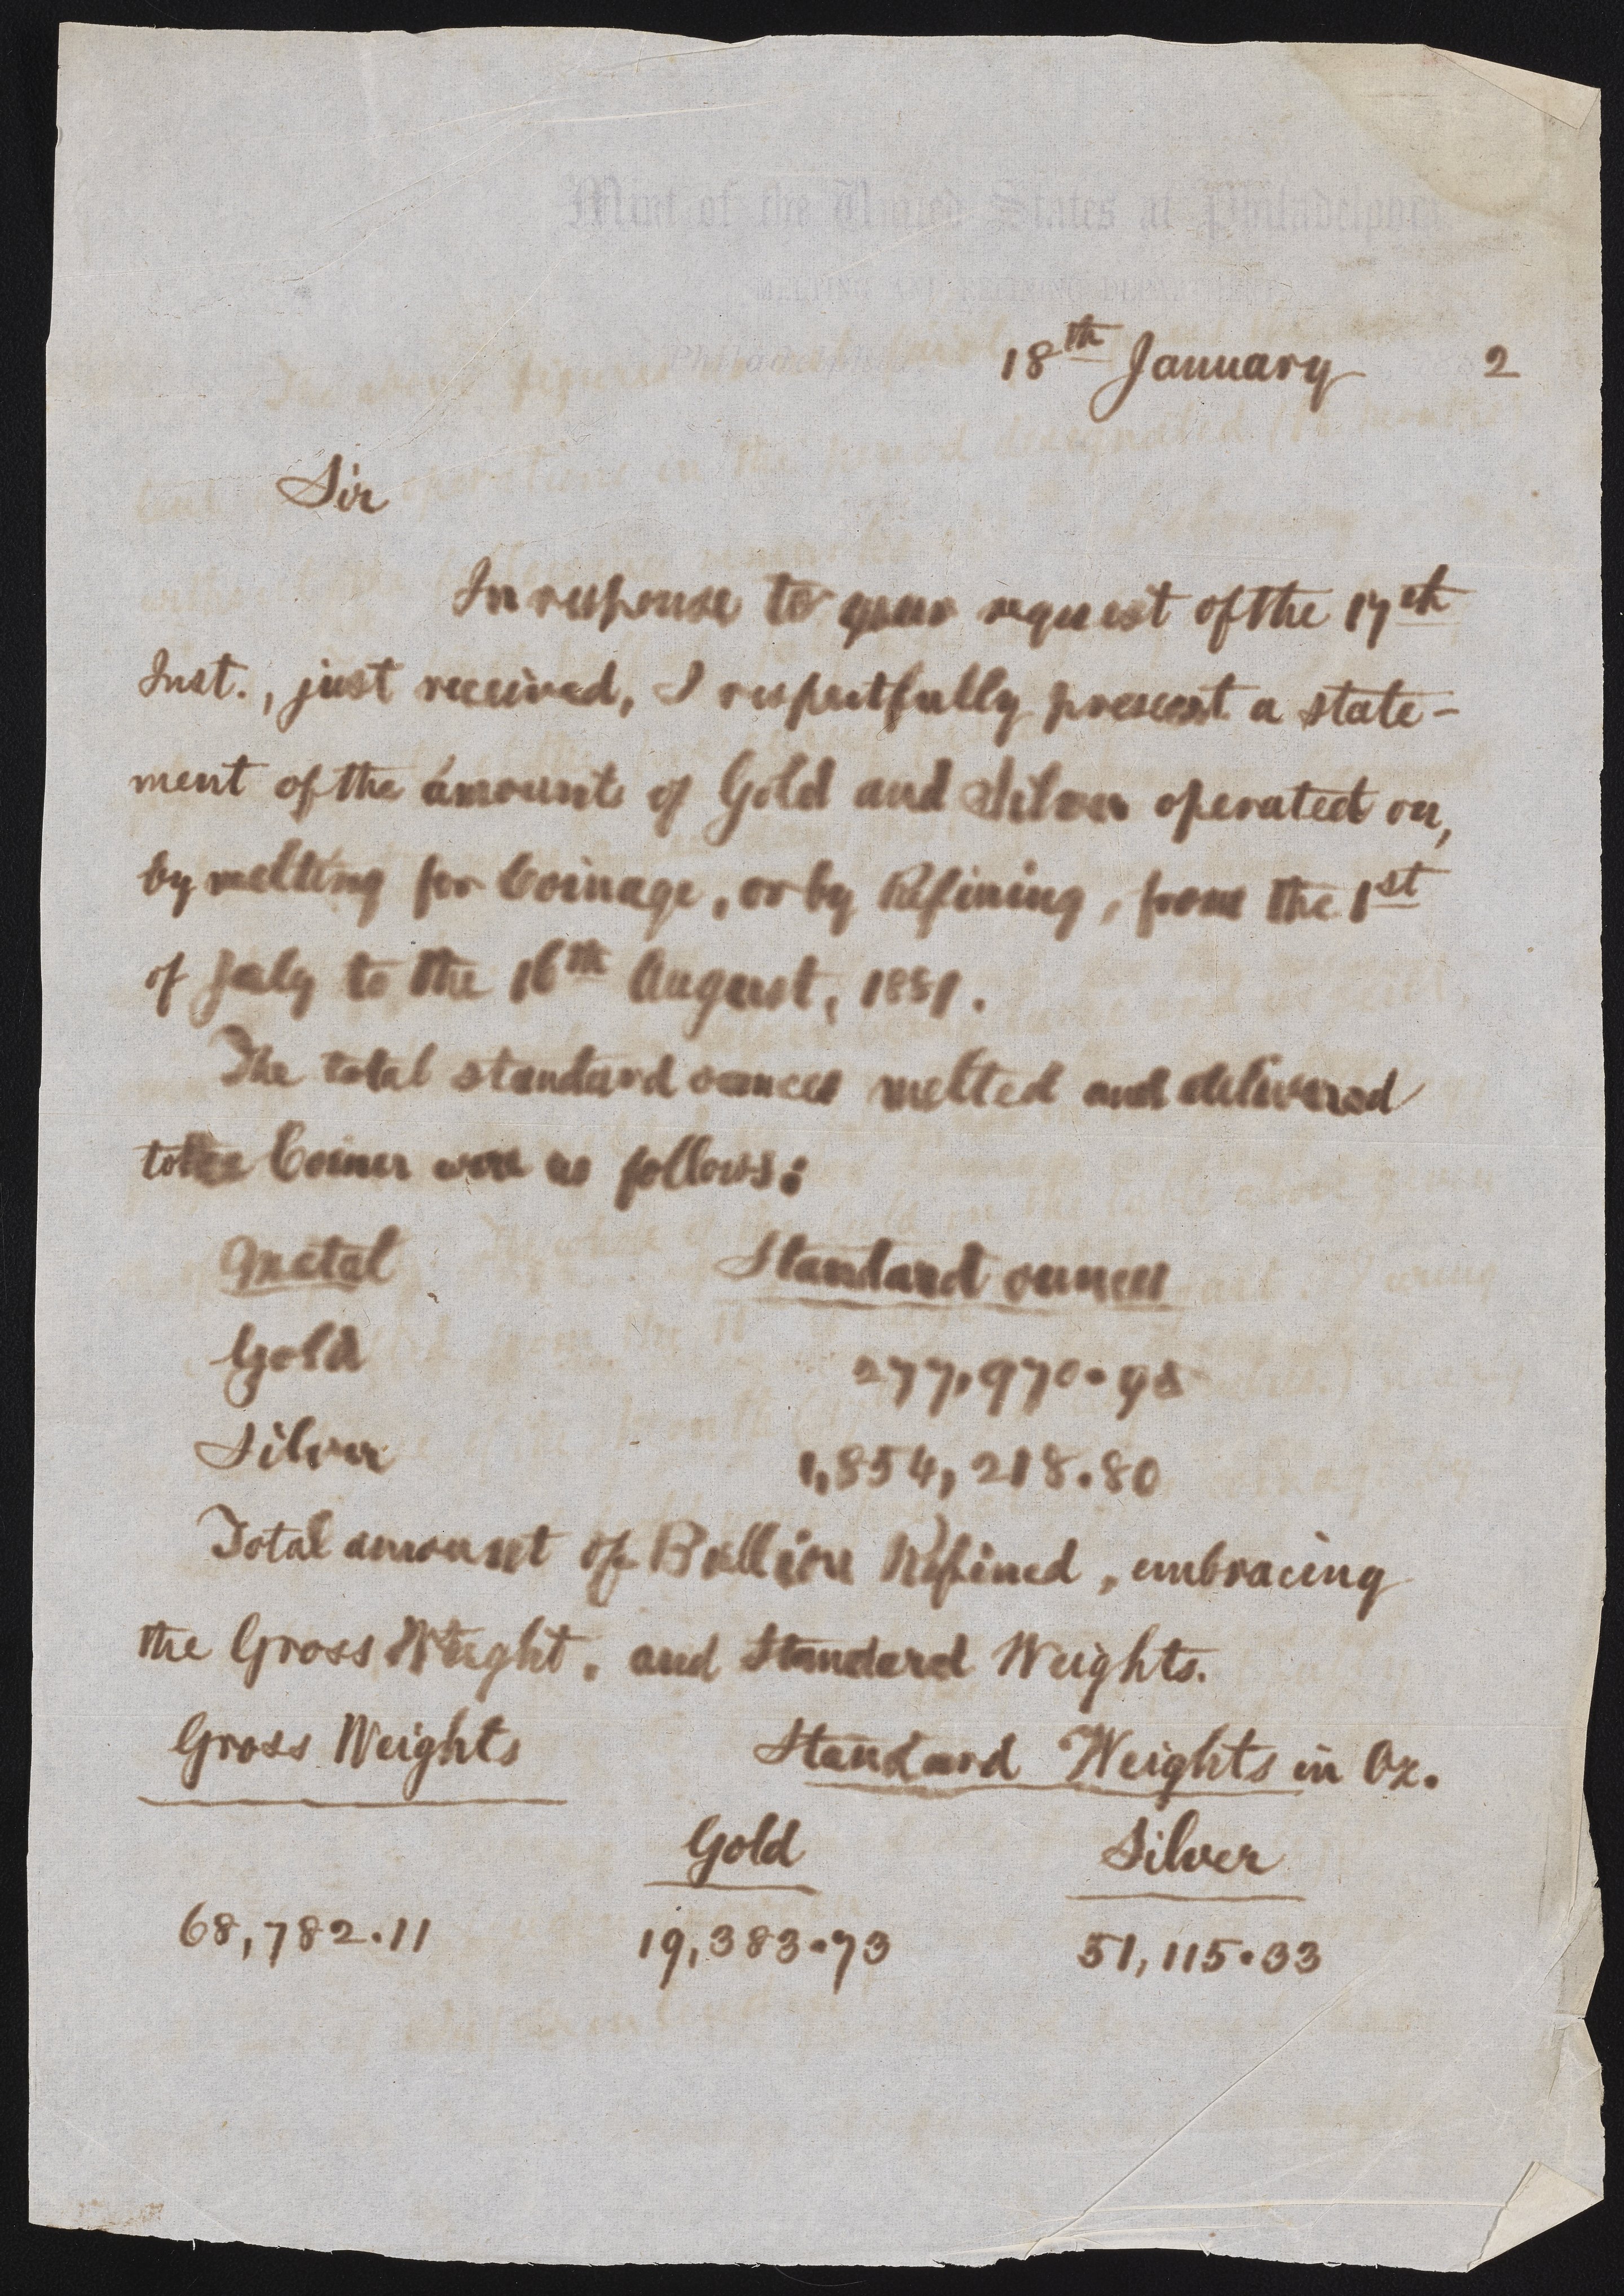 Mint of the United States at Philadelphia
MELTING AND REFINING DEPARTMENT
Philadelphia, 18th January 2
Sir
In response to your request of the 17th
Inst., just received, I respectfully present a state-
ment of the amount of Gold and Silver operated on,
by melting for Coinage, or by Refining, from the 1st
of July to the 16th August, 1881.
The total standard ounces melted and delivered
to the Coiner were as follows:
Metal Standard ounces
Gold 277,970.98
Silver 1,854,218.80
Total amount of Bullion Refined, embracing
the Gross Weight, and Standard Weights.
Gross Weights Standard Weights in Oz.
Gold Silver
68,782.11 19,383.73 51,115.33